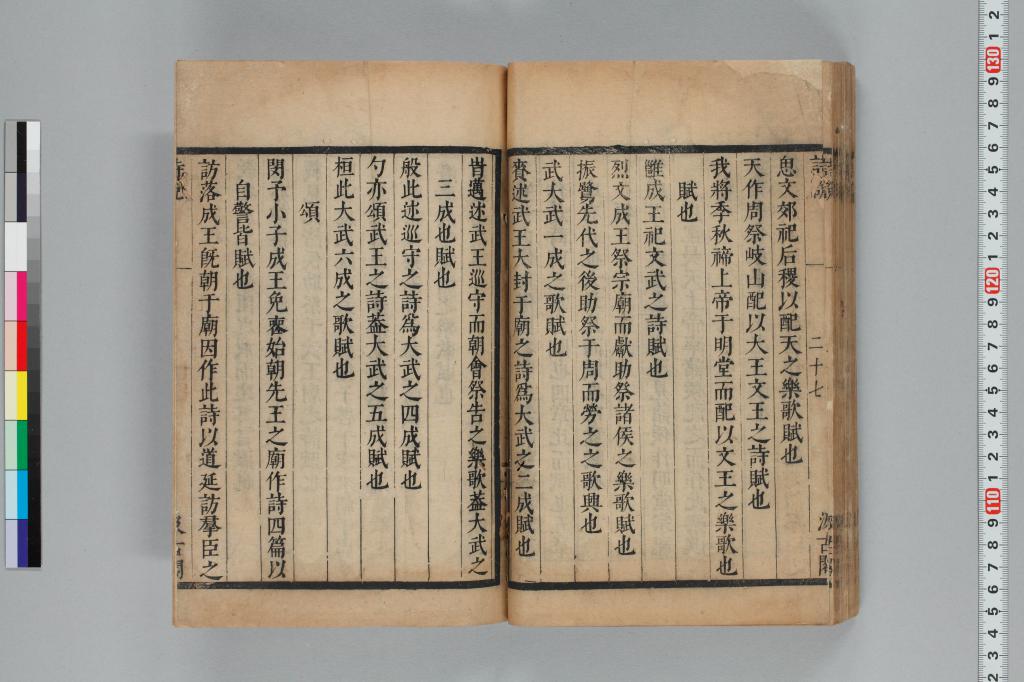 思文郊祀后稷以配天之樂歌賦也
天作周祭岐山配以大王文王之詩賦也
我將季秋禘上帝于明堂而配以文王之樂歌也
賦也
雝成王祀文武之詩賦也
烈文成王祭宗廟而獻助祭諸侯之樂歌賦也
振鷺先代之後助祭于周而勞之之歌興也
武大武一成之歌賦也
賚述武王大封于廟之詩爲大武之二成賦也
二十七
汲古閣
旹邁述武王巡守而朝會祭告之樂歌葢大武之
三成也賦也
般此述巡守之詩爲大武之四成賦也
勺亦頌武王之詩葢大武之五成賦也
桓此大武六成之歌賦也
頌
閔予小子成王免喪始朝先王之廟作詩四篇以
自警皆賦也
訪落成王旣朝于廟因作此詩以道延訪羣臣之